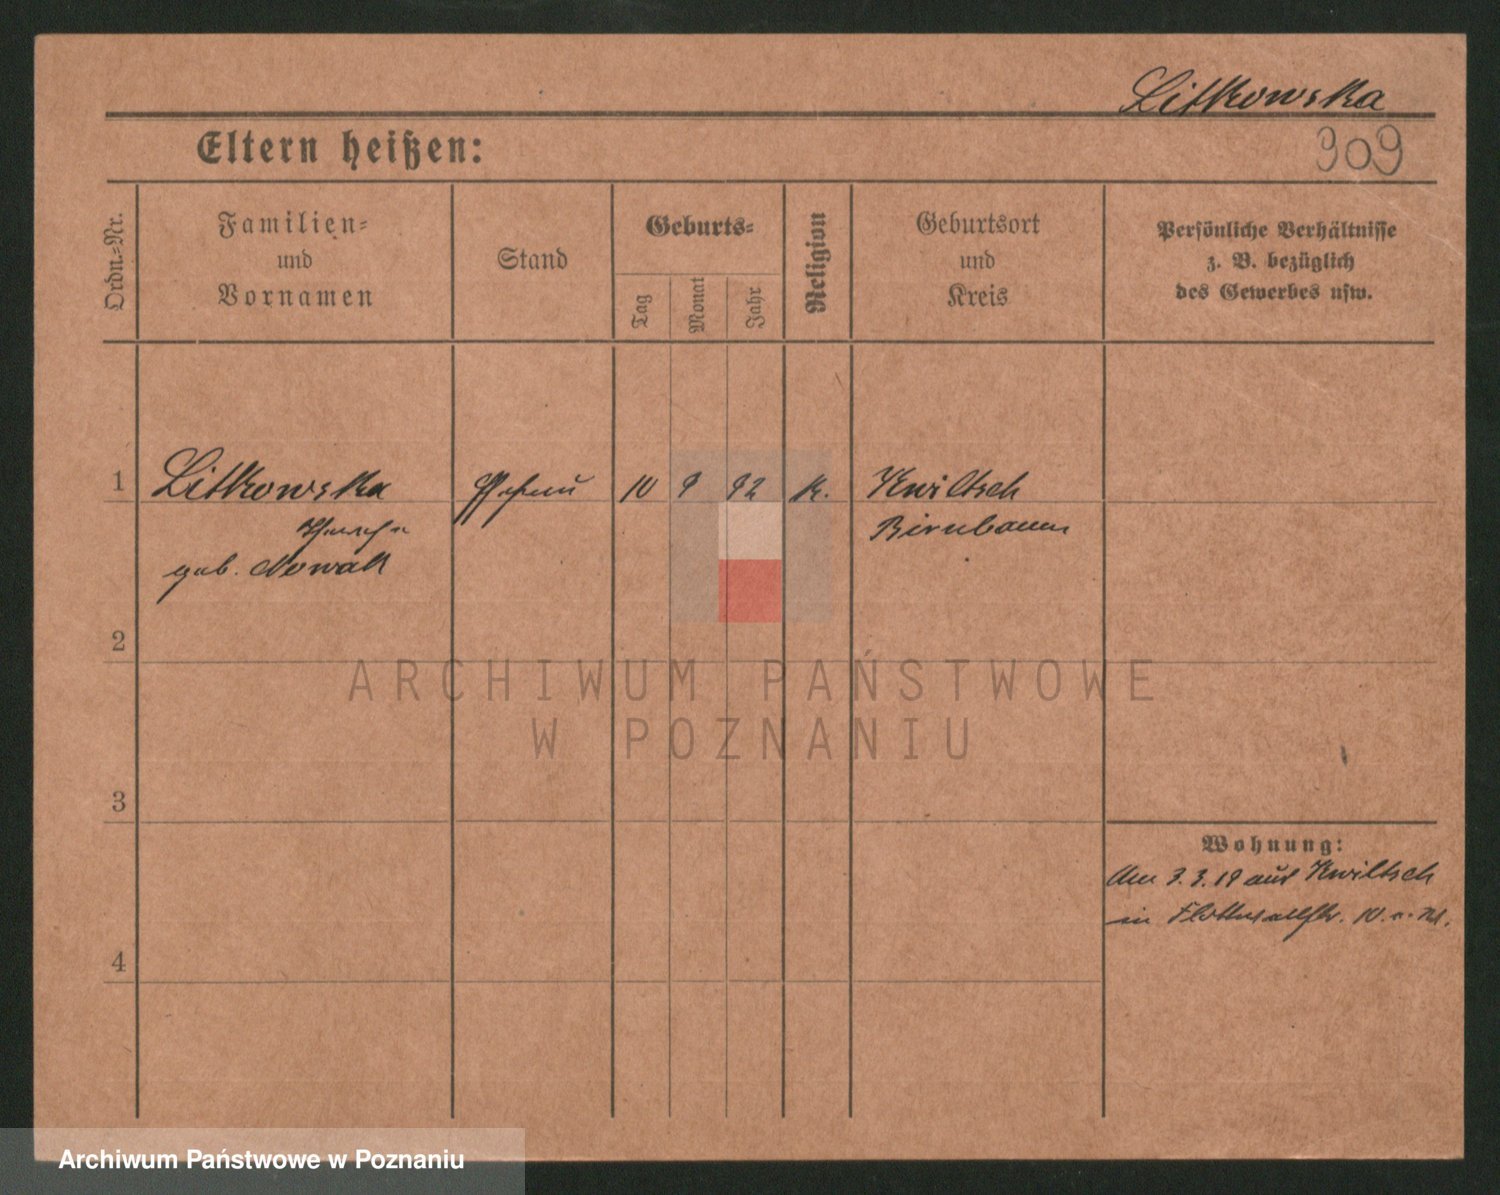 Litkowska
309
Eltern heißen:
Ordn.=Nr.
Familien=
und
Vornamen
Stand
Geburts=
Tag
Monat
Jahr
Religion
Geburtsort
und
Kreis
Persönliche Verhältnisse
z. B. bezüglich
des Gewerbes usw.
1
Litkowska
10 9 92 k.
Kwiltsch
Birnbaum
geb. Nowak
2
3
4
Wohnung:
Am 3.3.19 aus Kwiltsch
in
ARCHIWUM PAŃSTWOWE
W POZNANIU
Archiwum Państwowe w Poznaniu